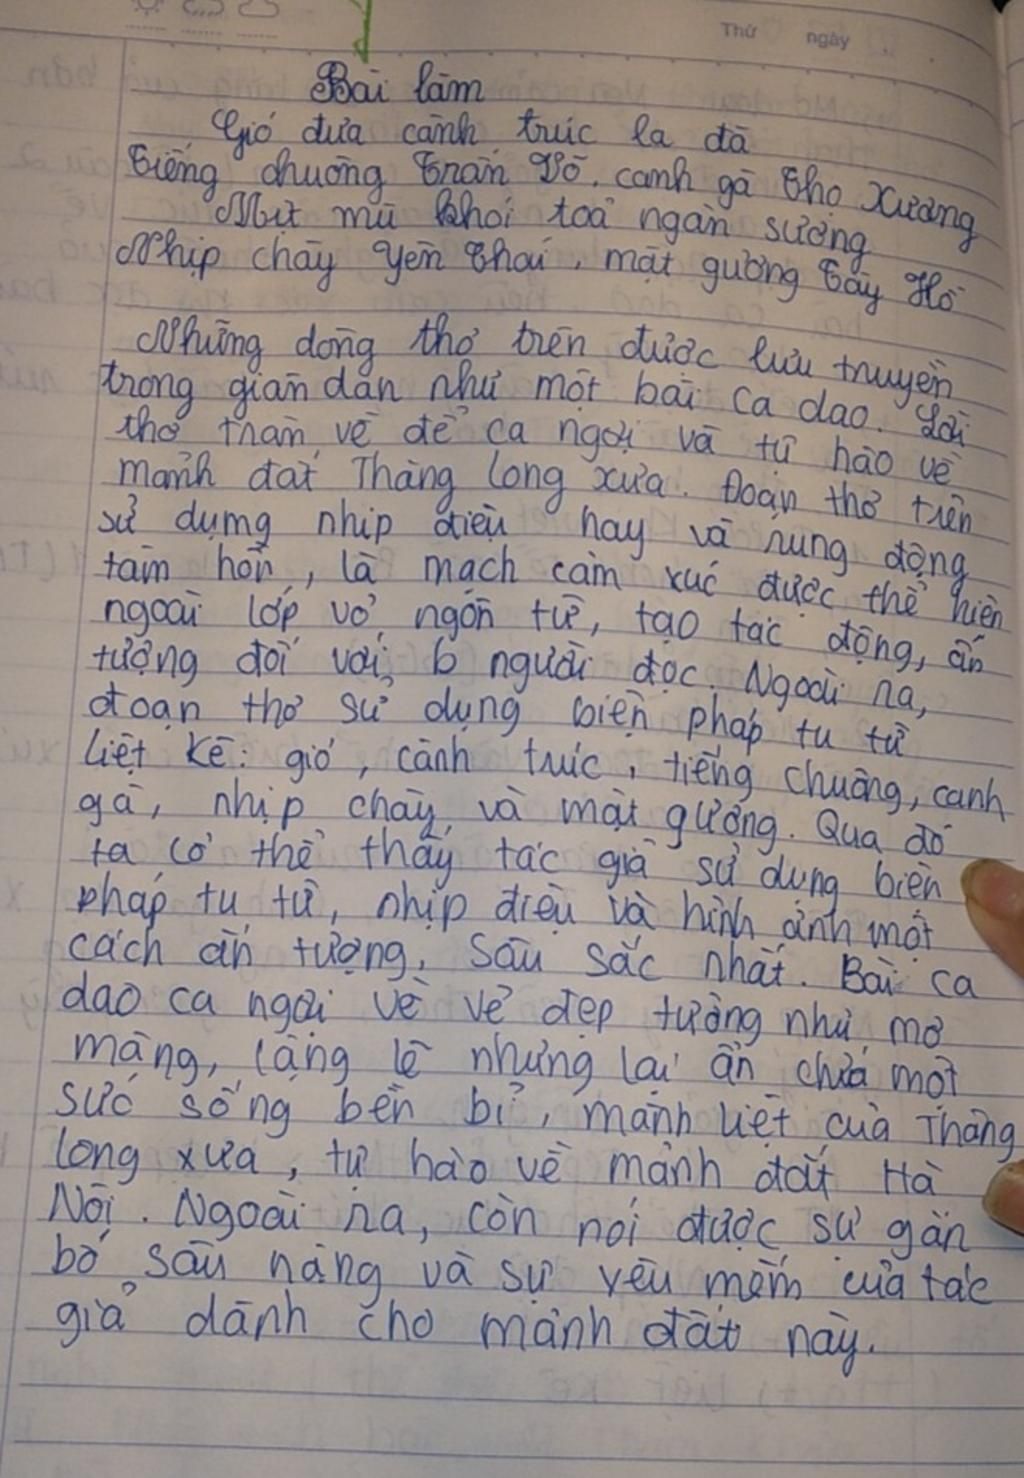 Thứ ngày
Bài làm
Gió đưa cành trúc la đà
Tiếng chuông Trấn Võ, canh gà Thọ Xương
Mịt mù khói toả ngàn sương
Nhịp chày Yên Thái, mặt gương Tây Hồ
Những dòng thơ trên được lưu truyền
trong gian dân như một bài ca dao. Lời
thơ thân về để ca ngợi và tự hào về
mảnh đất Thăng Long xưa. Đoạn thơ trên
sử dụng nhịp điệu hay và rung động
tâm hồn, là mạch cảm xúc được thể hiện
ngoài lớp vỏ ngôn từ, tạo tác động, ấn
tượng đối với người đọc. Ngoài ra,
đoạn thơ sử dụng biện pháp tu từ
liệt kê: gió, cành trúc, tiếng chuông, canh
gà, nhịp chày và mặt gương. Qua đó
ta có thể thấy tác giả sử dụng biện
pháp tu từ, nhịp điệu và hình ảnh một
cách ấn tượng, sâu sắc nhất. Bài ca
dao ca ngợi về vẻ đẹp tưởng như mơ
màng, lặng lẽ nhưng lại ẩn chứa một
sức sống bền bỉ, mãnh liệt của Thăng
Long xưa, tự hào về mảnh đất Hà
Nội. Ngoài ra, còn nói được sự gắn
bó sâu nặng và sự yêu mếm của tác
giả dành cho mảnh đất này.